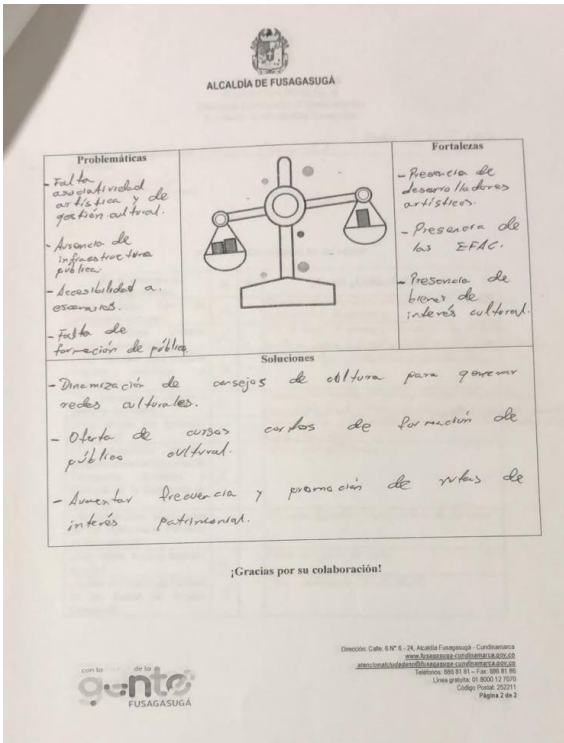 ALCALDÍA DE FUSAGASUGÁ
Problemáticas
- Falta
asociatividad
artística y de
gestión cultural.
- Ausencia de
infraestructura
pública
- Accesibilidad a
escenarios.
- Falta de
formación de público
Fortalezas
- Presencia de
desarrolladores
artísticos.
- Presencia de
las EFAC.
- Presencia de
bienes de
interés cultural.
Soluciones
- Dinamización de consejos de cultura para generar
redes culturales.
- Oferta de cursos cortos de formación de
público cultural.
- Aumentar frecuencia y promoción de rutas de
interés patrimonial.
¡Gracias por su colaboración!
con la de la
gente
FUSAGASUGÁ
Dirección: Calle. 6 N° 6 - 24, Alcaldía Fusagasugá - Cundinamarca
www.fusagasuga-cundinamarca.gov.co
atencionalciudadano@fusagasuga-cundinamarca.gov.co
Teléfonos: 886 81 81 – Fax: 886 81 86
Línea gratuita: 01 8000 12 7070
Código Postal: 252211
Página 2 de 2